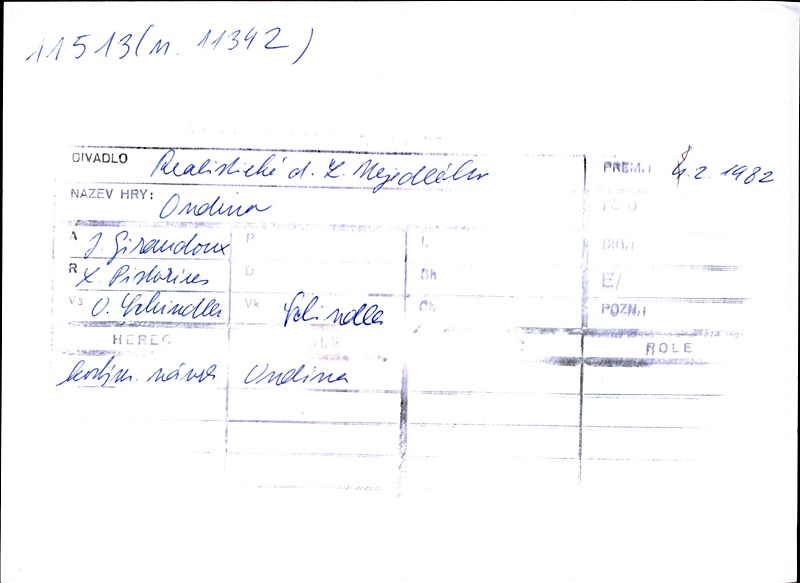 11513 (n. 11342)
DIVADLO Realistické d. Z. Nejedlého PREM.: 4.2. 1982
NÁZEV HRY: Ondina
A J. Giraudoux P L
R L. Pistorius D Sh SIG.:
Vs O. Schindler Vk Schindler Ch E/
POZN.:
HEREC ROLE
kostým. návrh Ondina